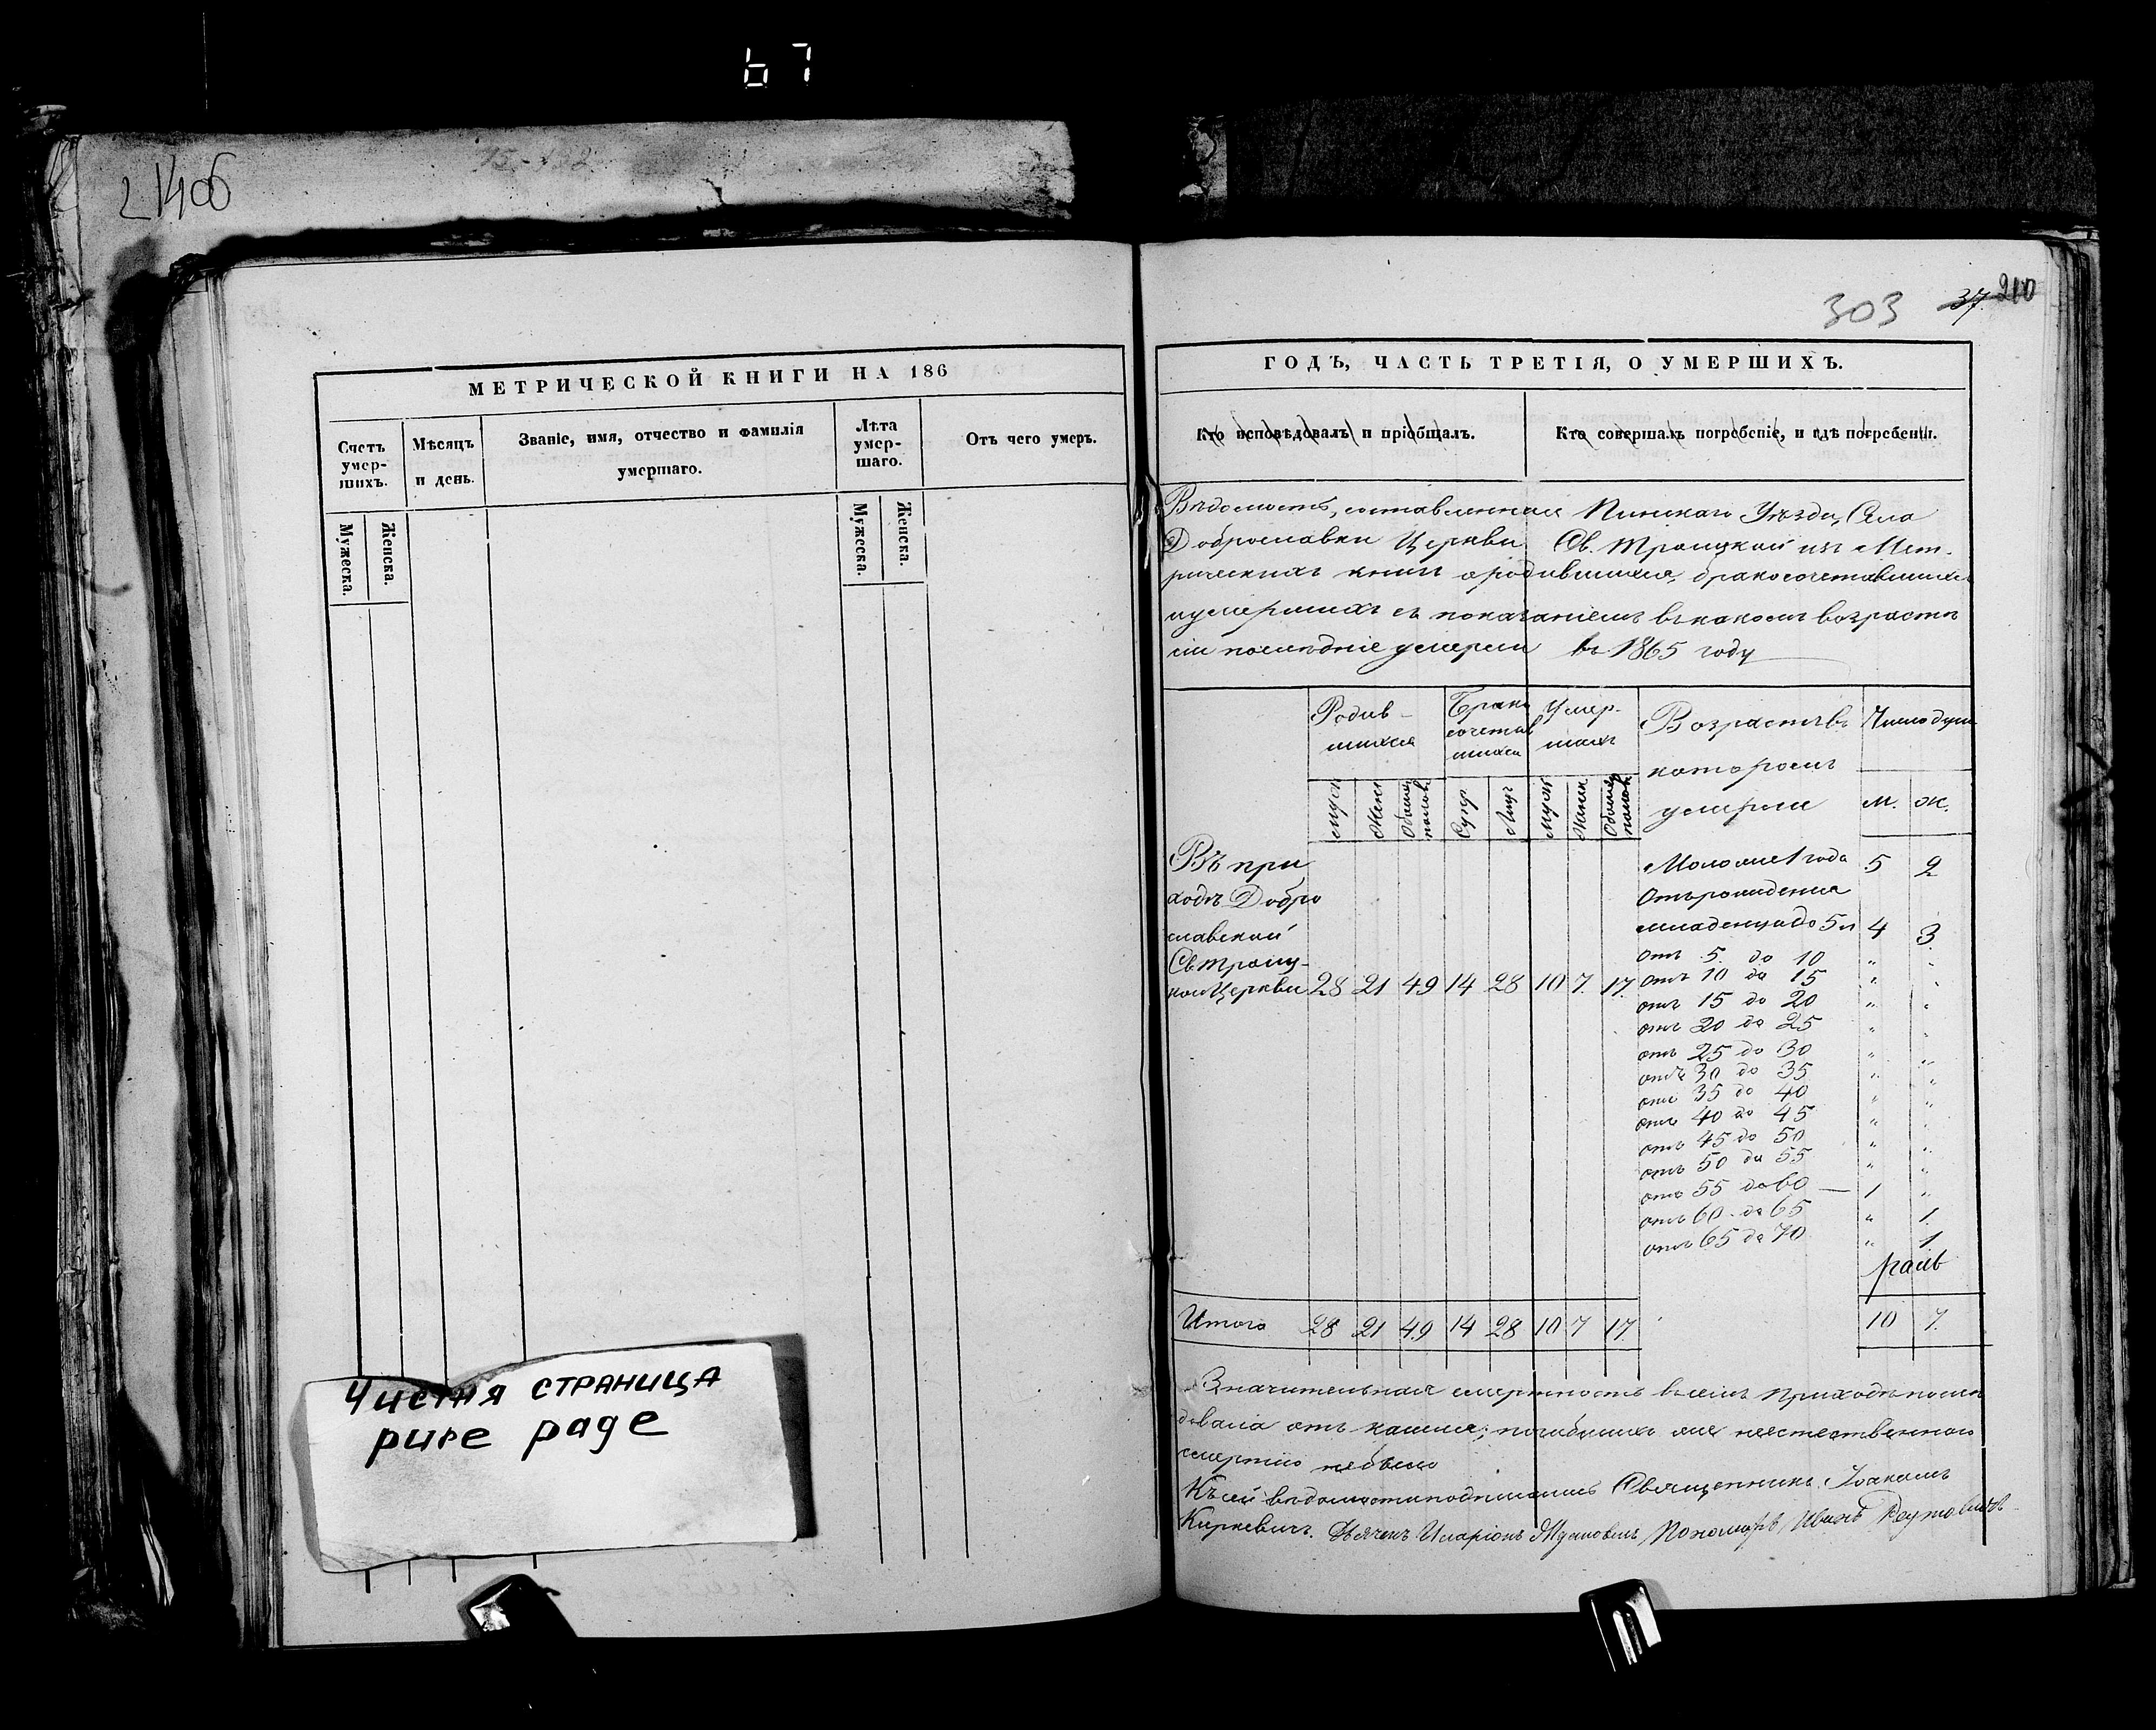 67
21406
303 37. 210
МЕТРИЧЕСКОЙ КНИГИ НА 186
Счетъ умер-шихъ.
Мѣсяцъ и день.
Званіе, имя, отчество и фамилія умершаго.
Лѣта умер-шаго.
Отъ чего умеръ.
Мужеска. Женска.
Мужеска. Женска.
Чистая страница
pure page
ГОДЪ, ЧАСТЬ ТРЕТІЯ, О УМЕРШИХЪ.
Кто исповѣдовалъ и пріобщалъ.
Кто совершалъ погребеніе, и гдѣ погребены.
Вѣдомость, составленная Пинскаго Уѣзда, Села
Доброславки Церкви Св. Троицкой изъ Мет-
рическихъ книгъ о родившихся, бракосочетавшихся
и умершихъ съ показаніемъ въ какомъ возрастѣ
сіи послѣдніе умерли въ 1865 году
Родив-шихся
Брако сочетав шихся
Умер-шихъ
Возрастъ въ которомъ умерли
Число душъ
Муж Женс Обоего полов.
Супр. Лицъ
Муж Женск Обоего полов.
М. Ж.
Въ при
ходѣ Добро
славской
Св Троиц-
кой Церкви 28 21 49 14 28 10 7. 17.
Моложе 1 года 5 2
Отъ рожденія
младенца до 5 л 4 3.
отъ 5. до 10 " "
отъ 10 до 15 " "
отъ 15 до 20 " "
отъ 20 до 25 " "
отъ 25 до 30 " "
отъ 30 до 35 " "
отъ 35 до 40 " "
отъ 40 до 45 " "
отъ 45 до 50 " "
отъ 50 до 55 " "
отъ 55 до 60 — 1 "
отъ 60 до 65 " 1.
отъ 65 до 70 " 1
Итого 28 21 49 14 28 10 7 17. 10 7.
Значительная смертность въ семъ приходѣ послѣ
довала отъ кашля; погибшихъ же неестественною
смертію небыло
Къ сей вѣдомости подписались Священникъ Іоакимъ
Киркевичъ. Дьячекъ Иларіонъ Пономарь Иванъ